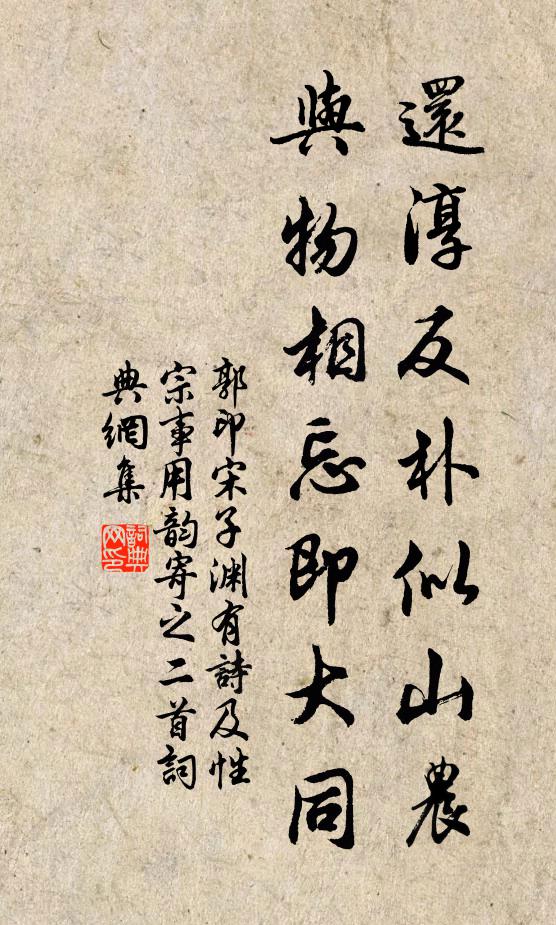 還淳反朴似山農
與物相忘即大同
郭印宋子渊有詩及性
宗事用韵寄之二首詞
典網集
詞典
网印